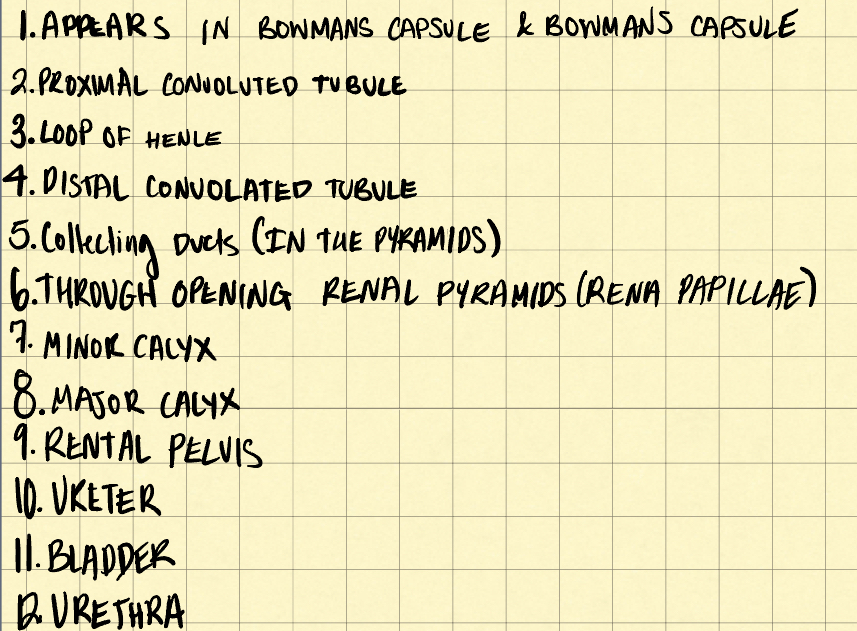 1. APPEARS IN BOWMANS CAPSULE & BOWMANS CAPSULE
2. PROXIMAL CONVOLUTED TUBULE
3. LOOP OF HENLE
4. DISTAL CONVOLATED TUBULE
5. Collecting Ducts (IN THE PYRAMIDS)
6. THROUGH OPENING RENAL PYRAMIDS (RENA PAPILLAE)
7. MINOR CALYX
8. MAJOR CALYX
9. RENTAL PELVIS
10. URETER
11. BLADDER
12. URETHRA